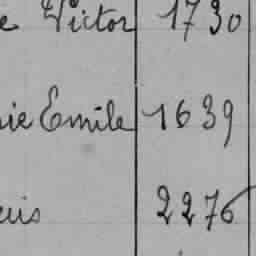 e Victor 1730
ie Emile 1639
uis 2276